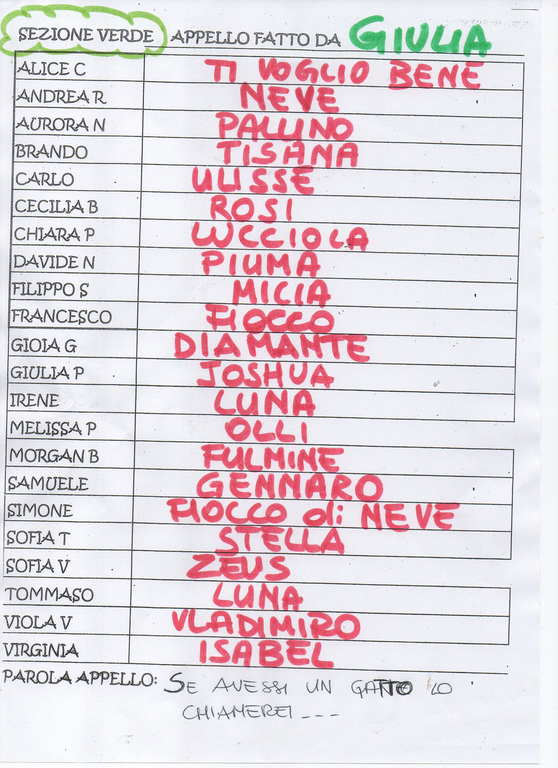 SEZIONE VERDE APPELLO FATTO DA GIULIA
ALICE C TI VOGLIO BENE
ANDREA R NEVE
AURORA N PALLINO
BRANDO TISANA
CARLO ULISSE
CECILIA B ROSI
CHIARA P LUCCIOLA
DAVIDE N PIUMA
FILIPPO S MICIA
FRANCESCO FIOCCO
GIOIA G DIAMANTE
GIULIA P JOSHUA
IRENE LUNA
MELISSA P OLLI
MORGAN B FULMINE
SAMUELE GENNARO
SIMONE FIOCCO di NEVE
SOFIA T STELLA
SOFIA V ZEUS
TOMMASO LUNA
VIOLA V VLADIMIRO
VIRGINIA ISABEL
PAROLA APPELLO: SE AVESSI UN GATTO LO
CHIAMEREI ---